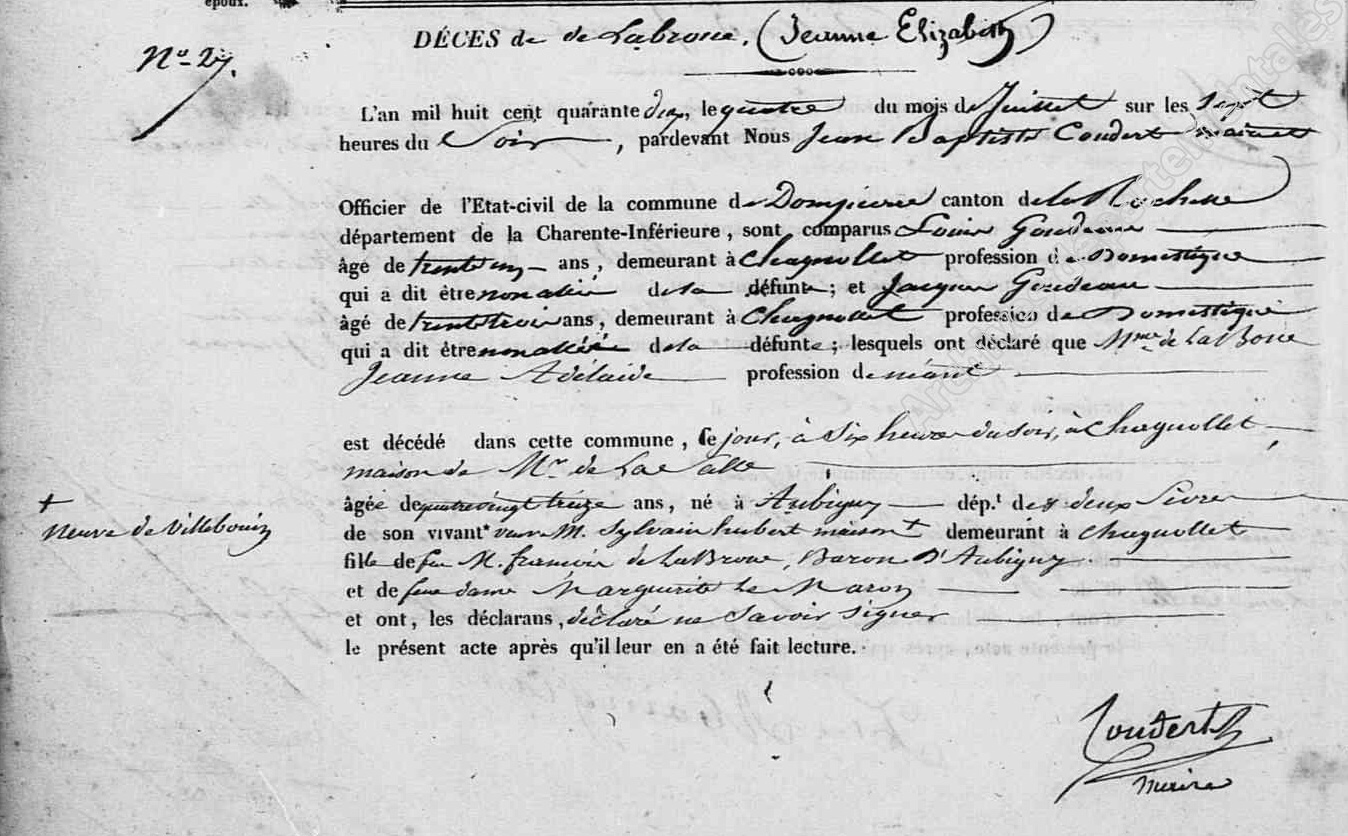 époux.
DÉCES de de Labroue. (Jeanne Elizabeth)
No. 27.
L'an mil huit cent quarante deux, le quatre du mois de Juillet sur les Sept
heures du Soir, pardevant Nous Jean Baptiste Coudert maire
Officier de l'Etat-civil de la commune de Dompierre canton de la Rochelle
département de la Charente-Inférieure, sont comparus Louis Gendeau
âgé de trente un ans, demeurant à Chagnollet profession de Domestique
qui a dit être non allié de la défunte; et Jacques Gendeau
âgé de trente trois ans, demeurant à Chagnollet profession de Domestique
qui a dit être non alliée de la défunte; lesquels ont déclaré que Mme de La Broue
Jeanne Adélaide profession de néant
est décédé dans cette commune, ce jour, à Six heures du Soir, à Chagnollet,
maison de Mr. de La Valle
âgée de quatre vingt treize ans, né à Aubigny dép.t des deux Sèvres
+
veuve de Villebouin
de son vivant veuve M. Sylvain hubert maison + demeurant à Chagnollet
fille de feu M. francois de La Broue, Baron D'Aubigny
et de feue dame Marguerite Le Maron
et ont, les déclarans, déclaré ne Savoir Signer
le présent acte après qu'il leur en a été fait lecture.
Coudert
maire
Archives Départementales